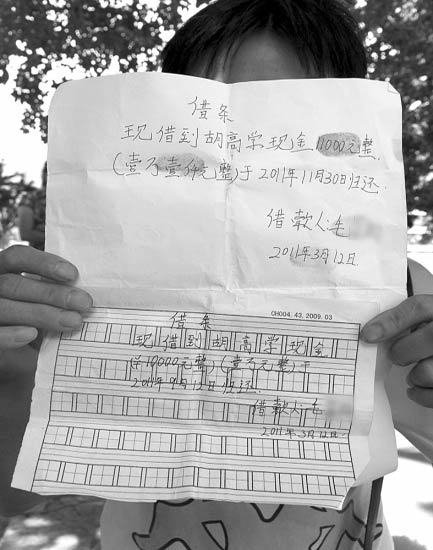 借条
现借到胡高学现金11000元整.
(壹万壹仟元整)于2011年11月30日归还.
借款人:毛
2011年3月12日.
CH004.43.2009.03
借条
现借到胡高学现金
(10000元整)(壹万元整)于
2011年9月12日归还.
借款人:毛
2011年3月12日.